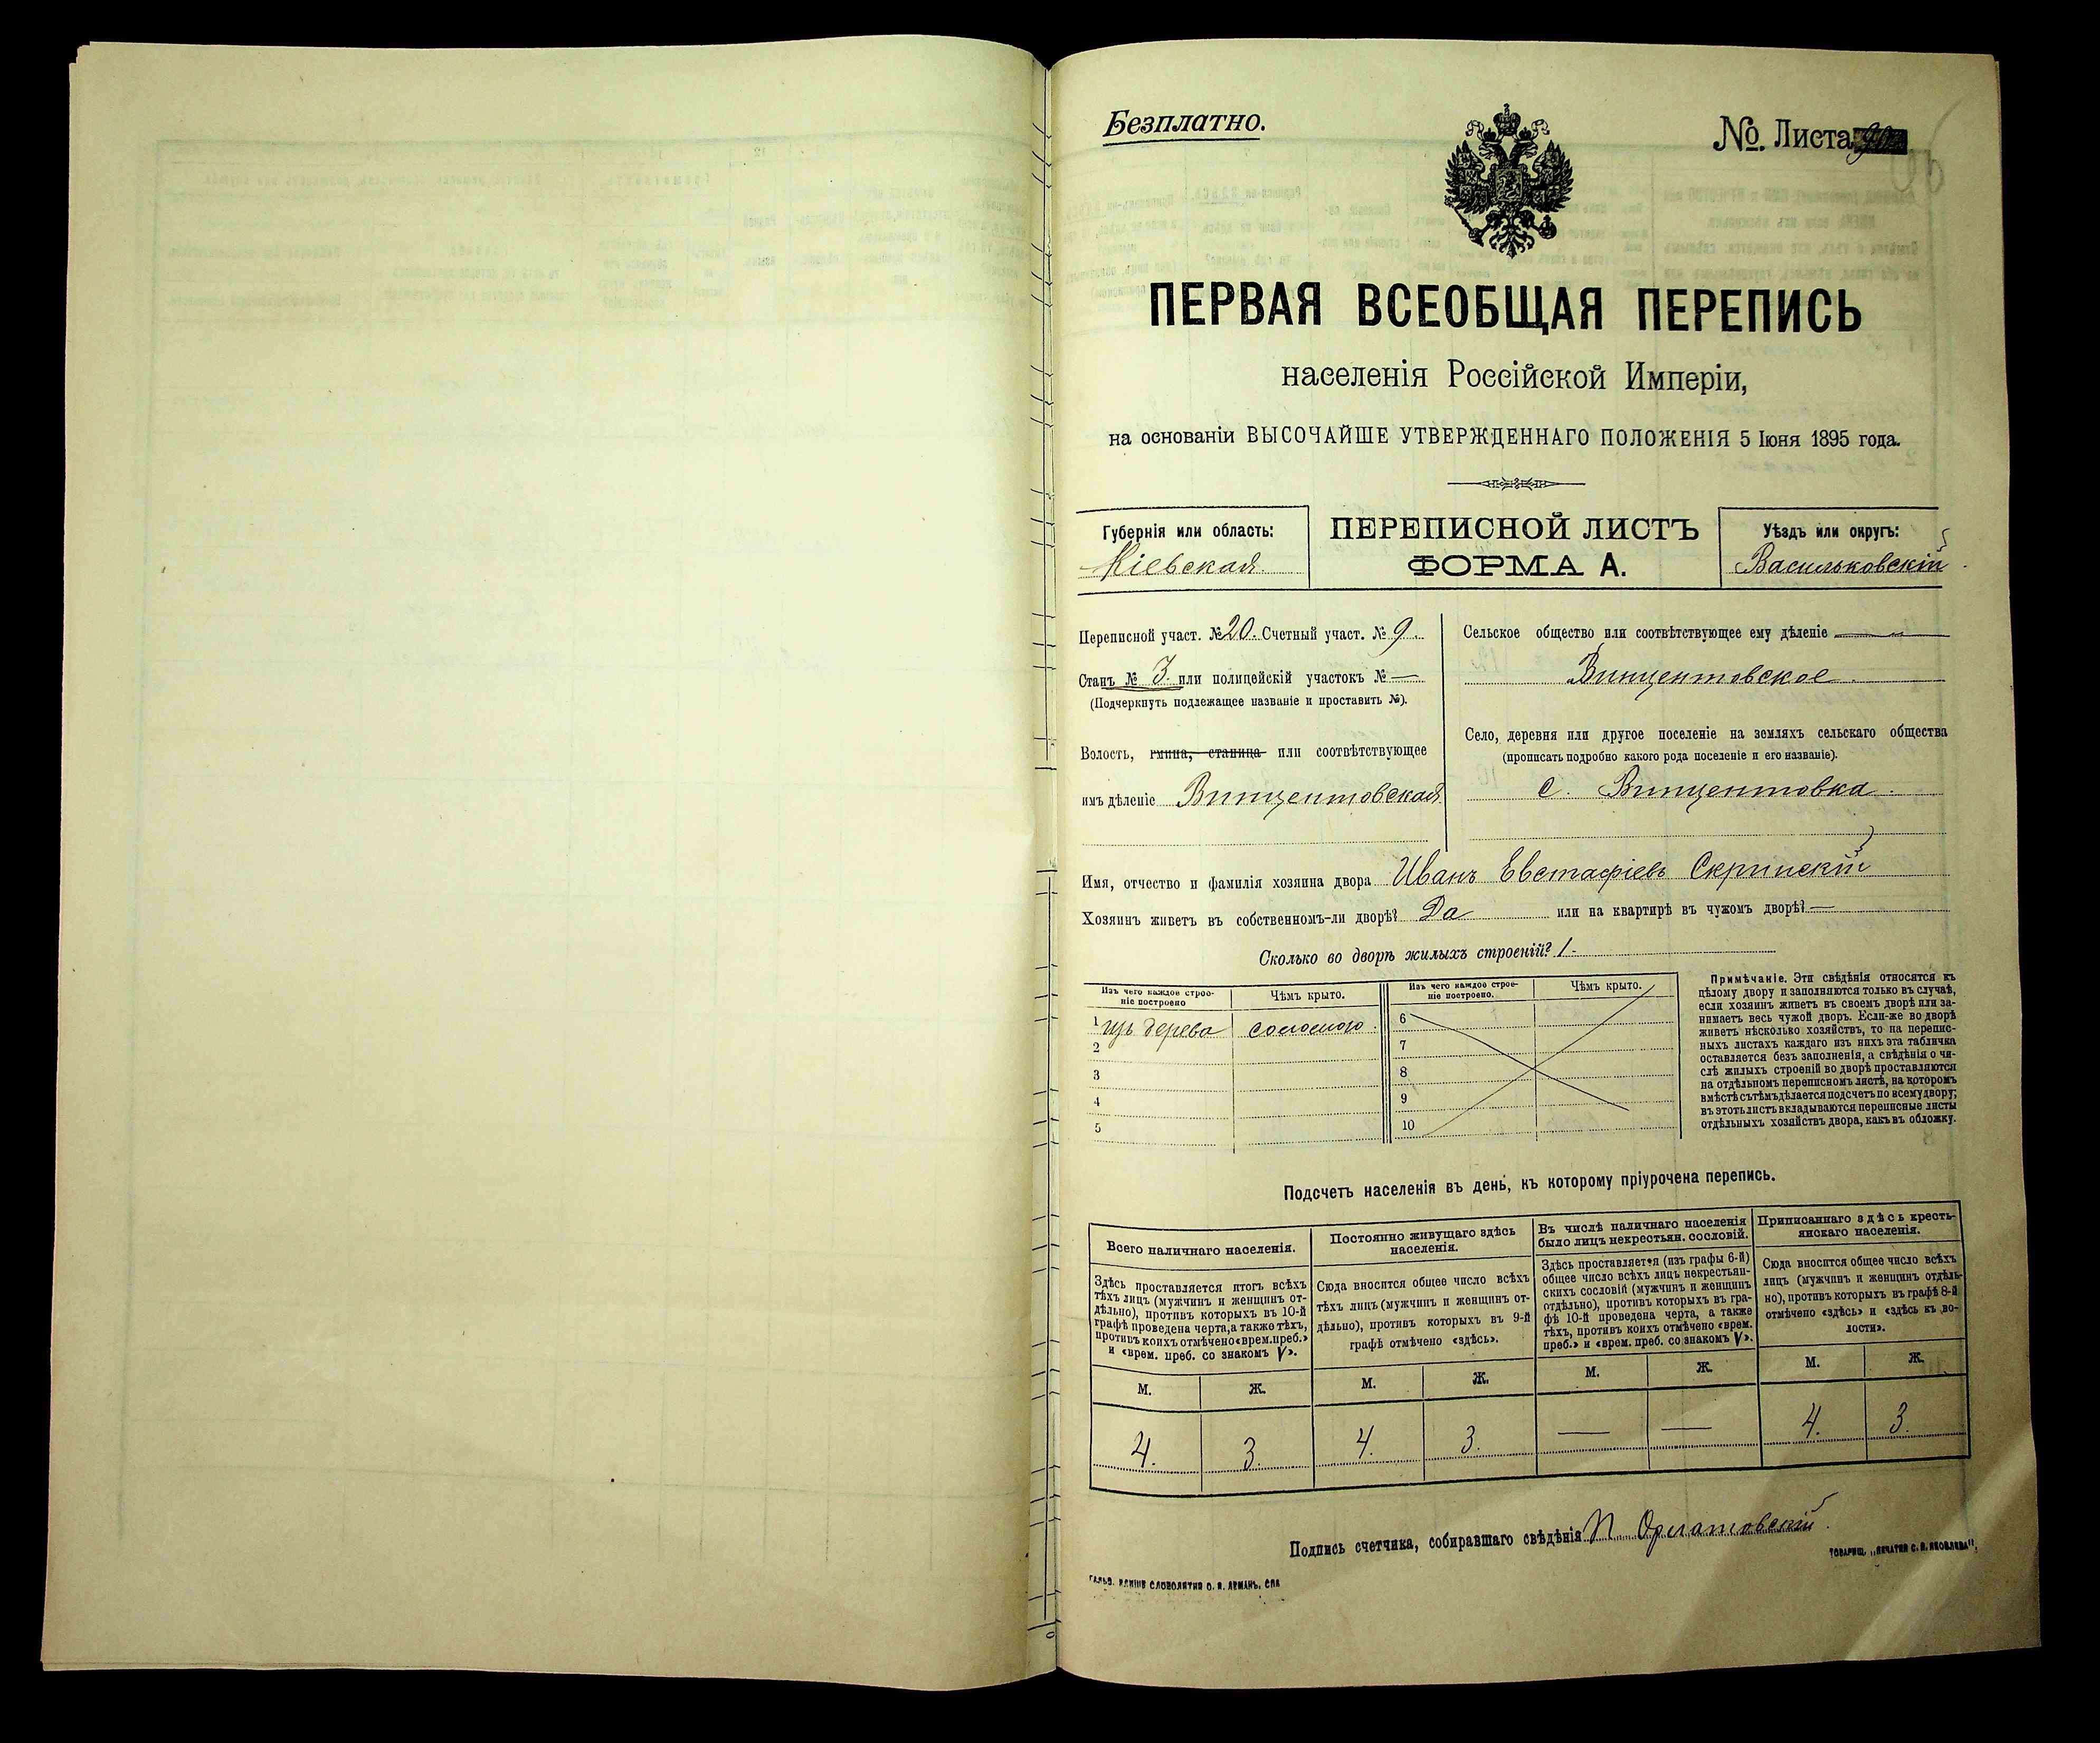 Безплатно.
№ Листа 90
ПЕРВАЯ ВСЕОБЩАЯ ПЕРЕПИСЬ
населенія Россійской Имперіи,
на основаніи ВЫСОЧАЙШЕ УТВЕРЖДЕННАГО ПОЛОЖЕНІЯ 5 Іюня 1895 года.
Губернія или область:
Кіевская
ПЕРЕПИСНОЙ ЛИСТЪ
ФОРМА А.
Уѣздъ или округъ:
Васильковскій
Переписной участ. № 20. Счетный участ. № 9.
Станъ № 3. или полицейскій участокъ № —
(Подчеркнуть подлежащее названіе и проставить №).
Волость, гмина, станица или соотвѣтствующее
имъ дѣленіе Винцентовская
Сельское общество или соотвѣтствующее ему дѣленіе
Винцентовское
Село, деревня или другое поселеніе на земляхъ сельскаго общества
(прописать подробно какого рода поселеніе и его названіе).
с. Винцентовка
Имя, отчество и фамилія хозяина двора Иванъ Евстафіевъ Скрипскій
Хозяинъ живетъ въ собственномъ-ли дворѣ? Да или на квартирѣ въ чужомъ дворѣ? —
Сколько во дворѣ жилыхъ строеній? 1
Изъ чего каждое строе-
ніе построено
Чѣмъ крыто.
Изъ чего каждое строе-
ніе построено.
Чѣмъ крыто.
1 изъ дерева соломою 6
2 7
3 8
4 9
5 10
Примѣчаніе. Эти свѣдѣнія относятся къ
цѣлому двору и заполняются только въ случаѣ,
если хозяинъ живетъ въ своемъ дворѣ или за-
нимаетъ весь чужой дворъ. Если-же во дворѣ
живетъ нѣсколько хозяйствъ, то на перепис-
ныхъ листахъ каждаго изъ нихъ эта табличка
оставляется безъ заполненія, а свѣдѣнія о чи-
слѣ жилыхъ строеній во дворѣ проставляются
на отдѣльномъ переписномъ листѣ, на которомъ
вмѣстѣ съ тѣмъ дѣлается подсчетъ по всему двору;
въ этотъ листъ вкладываются переписные листы
отдѣльныхъ хозяйствъ двора, какъ въ обложку.
Подсчетъ населенія въ день, къ которому пріурочена перепись.
Всего наличнаго населенія.
Постоянно живущаго здѣсь
населенія.
Въ числѣ наличнаго населенія
было лицъ некрестьян. сословій.
Приписаннаго здѣсь кресть-
янскаго населенія.
Здѣсь проставляется итогъ всѣхъ
тѣхъ лицъ (мужчинъ и женщинъ от-
дѣльно), противъ которыхъ въ 10-й
графѣ проведена черта, а также тѣхъ,
противъ коихъ отмѣчено «врем. преб.»
и «врем. преб. со знакомъ V».
Сюда вносится общее число всѣхъ
тѣхъ лицъ (мужчинъ и женщинъ от-
дѣльно), противъ которыхъ въ 9-й
графѣ отмѣчено «здѣсь».
Здѣсь проставляется (изъ графы 6-й)
общее число всѣхъ лицъ некрестьян-
скихъ сословій (мужчинъ и женщинъ
отдѣльно), противъ которыхъ въ гра-
фѣ 10-й проведена черта, а также
тѣхъ, противъ коихъ отмѣчено «врем.
преб.» и «врем. преб. со знакомъ V».
Сюда вносится общее число всѣхъ
лицъ (мужчинъ и женщинъ отдѣль-
но), противъ которыхъ въ графѣ 8-й
отмѣчено «здѣсь» и «здѣсь къ во-
лости».
М. Ж. М. Ж. М. Ж. М. Ж.
4. 3. 4. 3. — — 4. 3.
Подпись счетчика, собиравшаго свѣдѣнія
ТОВАРИЩ. „ПЕЧАТНЯ С. П. ЯКОВЛЕВА“.